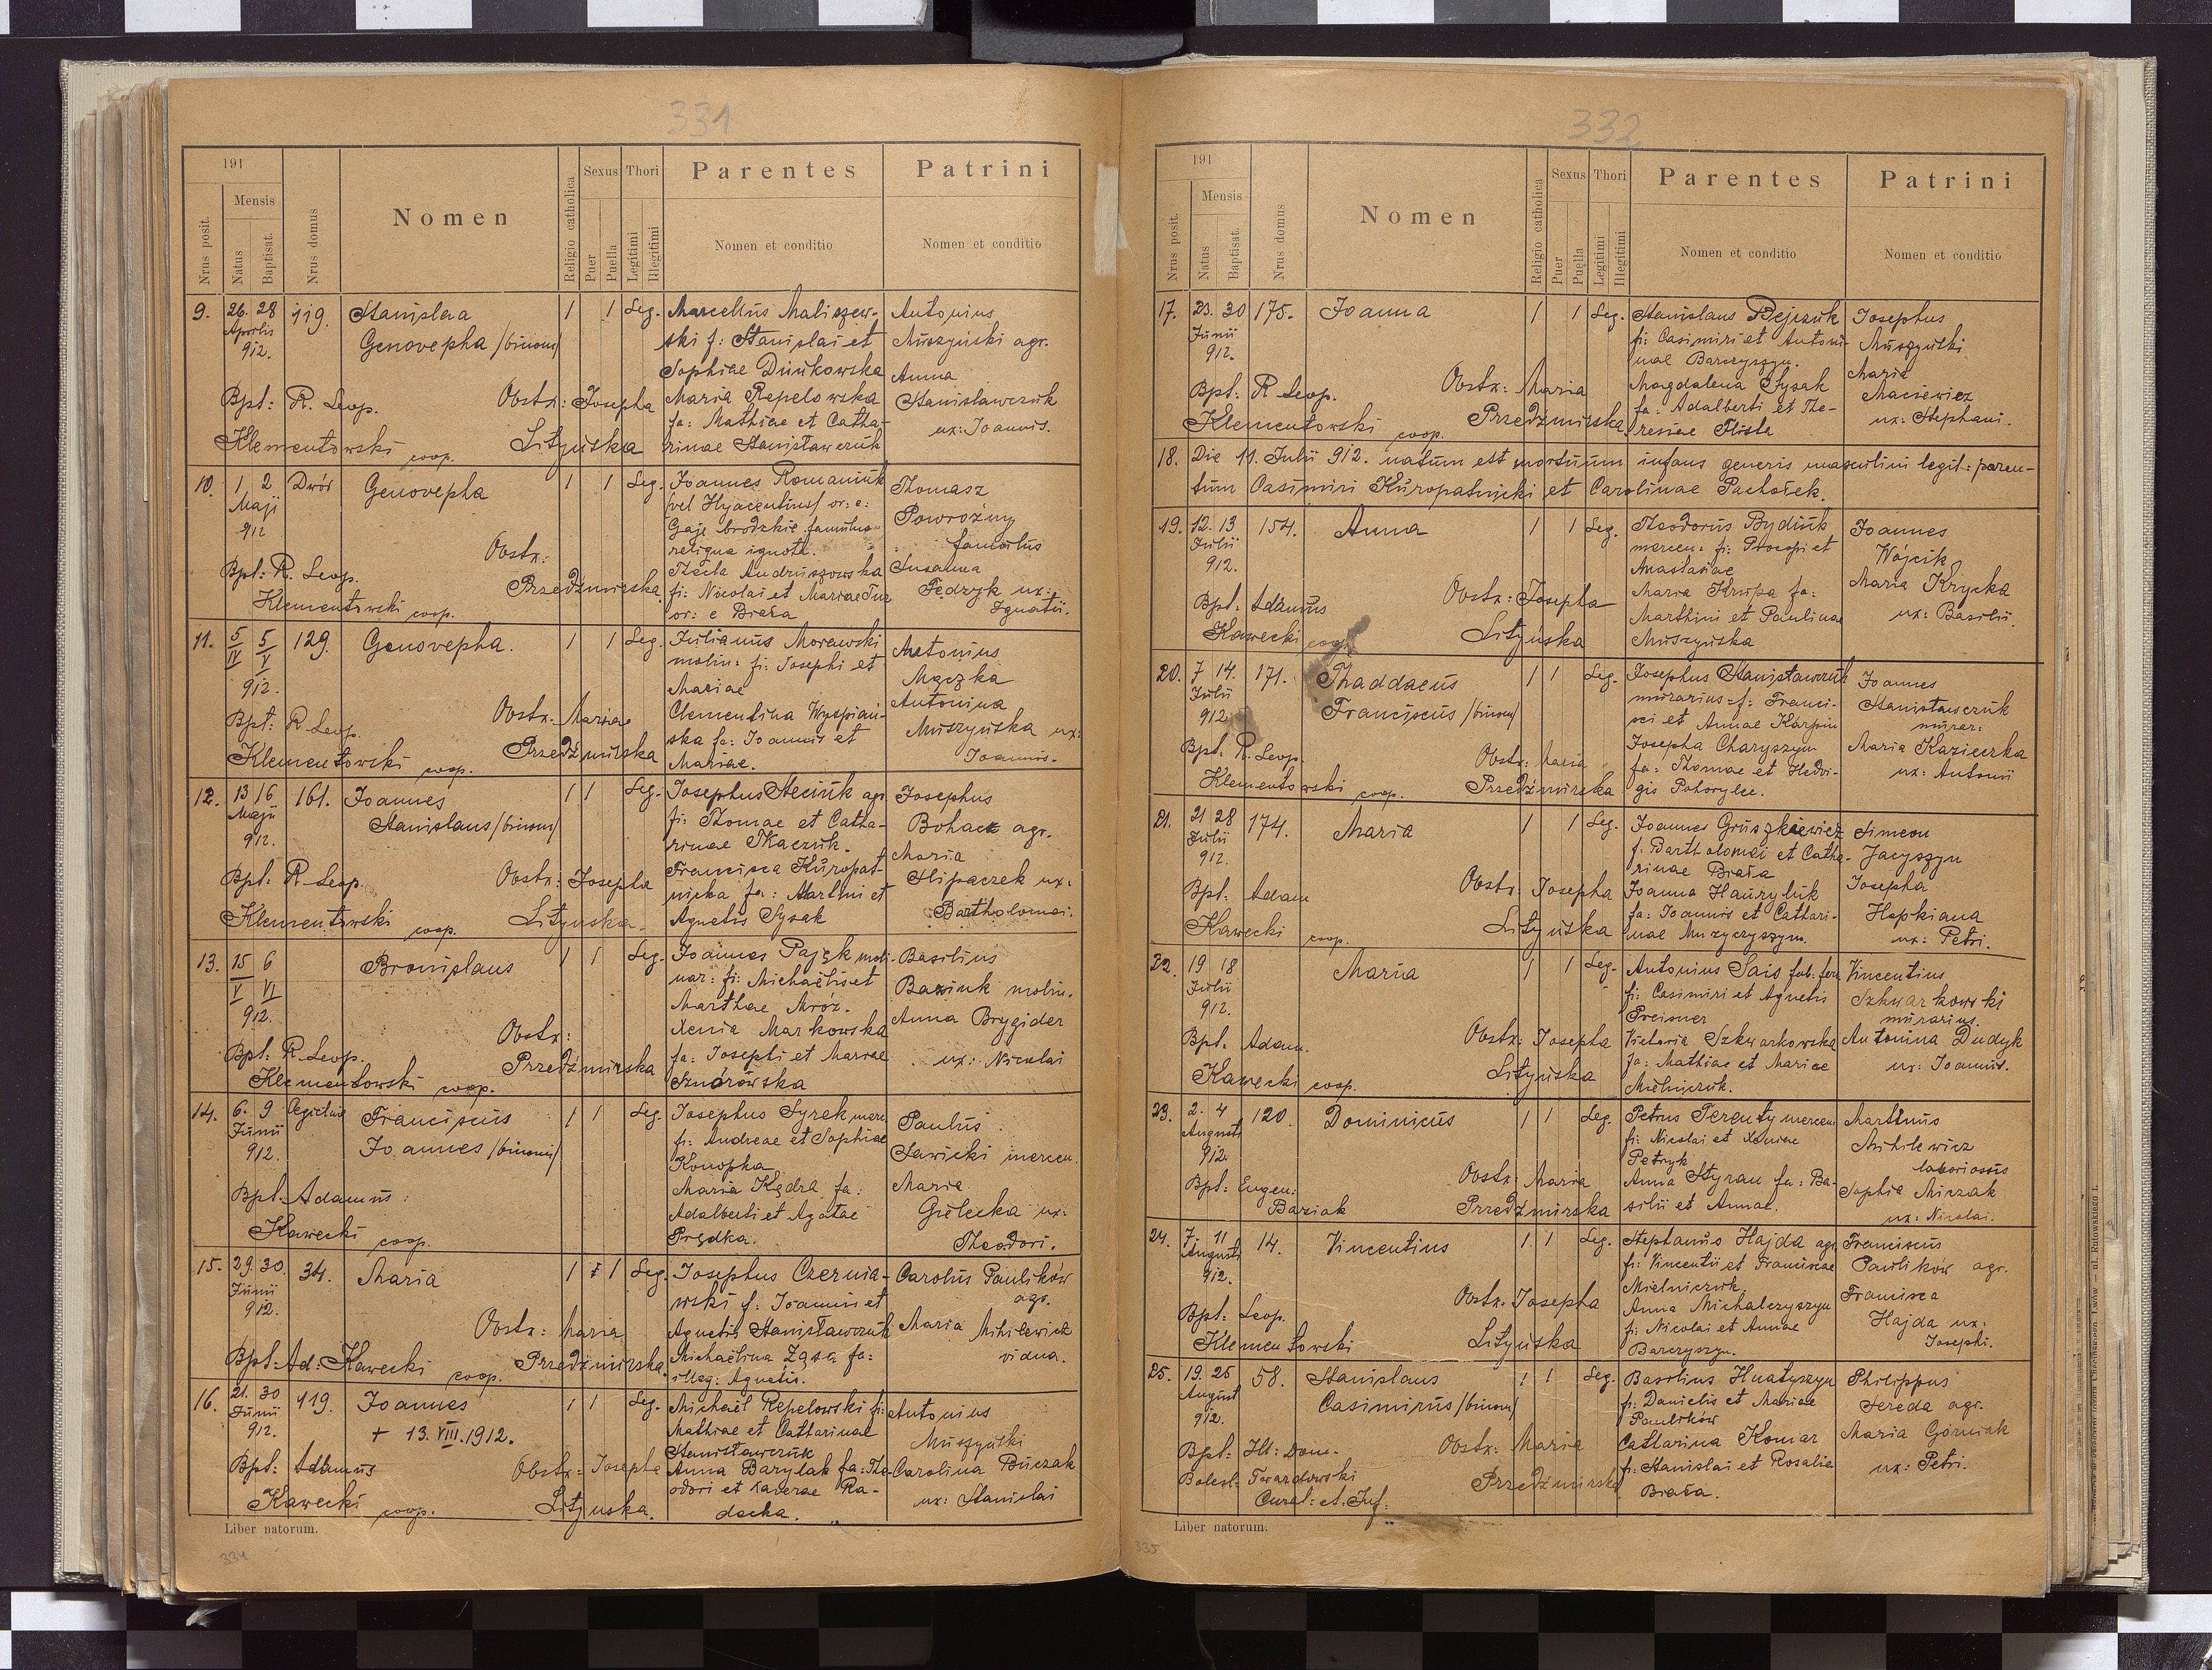 331
191
Nrus posit.
Mensis
Natus
Baptisat.
Nrus domus
Nomen
Religio catholica
Sexus
Puer
Puella
Thori
Legitimi
Illegitimi
Parentes
Nomen et conditio
Patrini
Nomen et conditio
9. 26. 28 119. Stanislava 1 1 Leg. Marcellus Maliszew- Antonius
Aprilis Genovepha /binom/ ski f: Stanislai et Muszyński agr.
912. Sophiae Duńkowska Anna
Bpt: R. Leop. Obstx: Josepha Maria Repelowska Stanisławczuk
Klementowski coop. Lityńska fa: Mathiae et Catha- ux: Joannis.
rinae Stanisławczuk
10. 1 2 Dwór Genovepha 1 1 Leg. Joannes Romaniuk Thomasz
Maji /vel Hyacentius/ or: e: Powroźny
912 Gaje brodzkie famulus famulus
Obstx: reliqua ignota. Susanna
Bpt: R. Leop. Przedźmirska Thecla Andruszowska Fedzyk ux:
Klementowski coop. fi: Nicolai et Mariae Tuz Ignatii.
or: e Brata
11. 5/IV 5/V 129. Genovepha. 1 1 Leg. Julianus Morawski Antonius
912. molin: fi: Josephi et Mączka
Mariae Antonina
Obstx: Mariae Clementina Wyspiań- Muszyńska ux:
Bpt: R. Leop. Przedźmirska ska fa: Joannis et Joannis.
Klementowski coop. Mariae.
12. 13 16 161. Joannes 1 1 Leg. Josephus Steciuk agr Josephus
Maji Stanislaus /binom/ fi: Thomae et Catha- Bohacz agr.
912. rinae Tkaczuk. Maria
Bpt: R. Leop. Obstx: Josepha Francisca Kuropat- Slipaczek ux:
Klementowski coop. Lityńska nicka fa: Martini et Bartholomei.
Agnetis Sysak
13. 15/V 6/VI Bronislaus 1 1 Leg. Joannes Pająk moli- Basilius
912. nar: fi: Michaëlis et Baziuk molin.
Marthae Mróz. Anna Brygider
Obstx: Xenia Markowska ux: Nicolai
Bpt: R. Leop. Przedźmirska fa: Josephi et Mariae
Klementowski coop. Sznórówska
14. 6. 9 Franciscus 1 1 Leg. Josephus Syrek merc. Paulus
Junii Joannes /binomis/ fi: Andreae et Sophiae Sawicki mercen.
912. Konopha Maria
Bpt: Adamus: Maria Kędra fa: Gielecka ux:
Kawecki coop. Adalberti et Agatae Theodori.
Prędka.
15. 29. 30. 34. Maria 1 1 Leg. Josephus Czernia- Carolus Paulików
Junii wski f: Joannis et agr.
912. Obstx: Maria Agnetis Stanisławczuk Maria Mihilewicz
Bpt: Ad: Kawecki coop. Przedźmirska. Michaëlina Zając fa: vidua.
illeg: Agnetis.
16. 21. 30 119. Joannes 1 1 Leg. Michaël Repelowski fi: Antonius
Junii + 13. VIII. 1912. Mathiae et Catharinae Muszyński
912. Stanisławczuk
Bpt: Adamus Obstx: Josepha Anna Barylak fa: The- Carolina Buczak
Kawecki coop. Lityńska. odori et Xaverae Ra- ux: Stanislai
decka.
Liber natorum.
334
332
191
Nrus posit.
Mensis
Natus
Baptisat.
Nrus domus
Nomen
Religio catholica
Sexus
Puer
Puella
Thori
Legitimi
Illegitimi
Parentes
Nomen et conditio
Patrini
Nomen et conditio
17. 23. 30 175. Joanna 1 1 Leg. Stanislaus Bejczuk Josephus
Junii fi: Casimiri et Antoni- Muszyński
912. nae Barczyszyn. Maria
Bpt: R. Leop. Obstx: Maria Magdalena Sysak Maciewicz
Klementowski coop. Przedźmirska. fa: Adalberti et The- ux: Stephani.
resiae Flista
18. Die 11. Julii 912. natum est mortuum infans generis masculini legit: paren-
tum Casimiri Kuropatnicki et Carolinae Pachołek.
19. 12. 13 154. Anna 1 1 Leg. Theodorus Bydiuk Joannes
Julii mercen: fi: Procopi et Wójcik
912. Anastasiae Maria Krycka
Bpt: Adamus Obstx: Josepha Maria Krupa fa: ux: Basilii.
Kawecki coop. Lityńska Marthini et Paulinae
Muszyńska
20. 7 14. 171. Thaddaeus 1 1 Leg. Josephus Stanisławczuk Joannes
Julii Franciscus /binom/ murarius f: Franci- Stanisławczuk
912 sci et Annae Karpin murar:
Bpt: R. Leop. Obstx: Maria Josepha Charyszyn Maria Kazieczka
Klementowski coop. Przedźmirska fa: Thomae et Hedvi- ux: Antonii
gis Pohorylec.
21. 21 28 174. Maria 1 1 Leg. Joannes Gruszkiewicz Simeon
Julii f: Bartholomei et Catha- Jacyszyn
912. rinae Brata Josepha
Bpt: Adam Obstx: Josepha Joanna Hauryluk Hepkiana
Kawecki coop. Lityńska fa: Joannis et Cathari- ux: Petri.
nae Muzyczyszyn.
22. 19 18 Maria 1 1 Leg. Antonius Sais fab: ferr. Vincentius
Julii fi: Casimiri et Agnetis Szkwarkowski
912. Preisner murarius.
Bpt: Adam. Obstx: Josepha Victoria Szkwarkowska Antonina Dudyk
Kawecki coop. Lityńska fa: Mathiae et Mariae ux: Joannis.
Mielniczuk.
23. 2. 4 120. Dominicus 1 1 Leg. Petrus Terenty mercen Martinus
Augusti fi: Nicolai et Xeniae Mihilewicz
912. Petryk laboriosus
Bpt: Eugen: Obstx: Maria Anna Styran fa: Ba- Sophia Mirzak
Baziak Przedźmirska silii et Annae. ux: Nicolai.
24. 7. 11 14. Vincentius 1. 1 Leg. Stephanus Hajda agr. Franciscus
Augusti fi: Vincentii et Franciscae Paulików agr.
912. Mielniczuk Francisca
Bpt: Leop. Obstx: Josepha Anna Michalczyszyn Hajda ux:
Klementowski Lityńska fi: Nicolai et Annae Josephi.
Barczyszyn.
25. 19. 25 58. Stanislaus 1 1 Leg. Basilius Hnatyszyn Philippus
August Casimirus /binom/ fi: Danielis et Mariae Fereda agr.
912. Paulików
Bpt: Ill: Dom. Obstx: Maria Catharina Komar Maria Górniak
Bolesl: Twardowski Przedźmirska fi: Stanislai et Rosalia ux: Petri.
Cural: et. Inf: Brata.
Liber natorum.
335